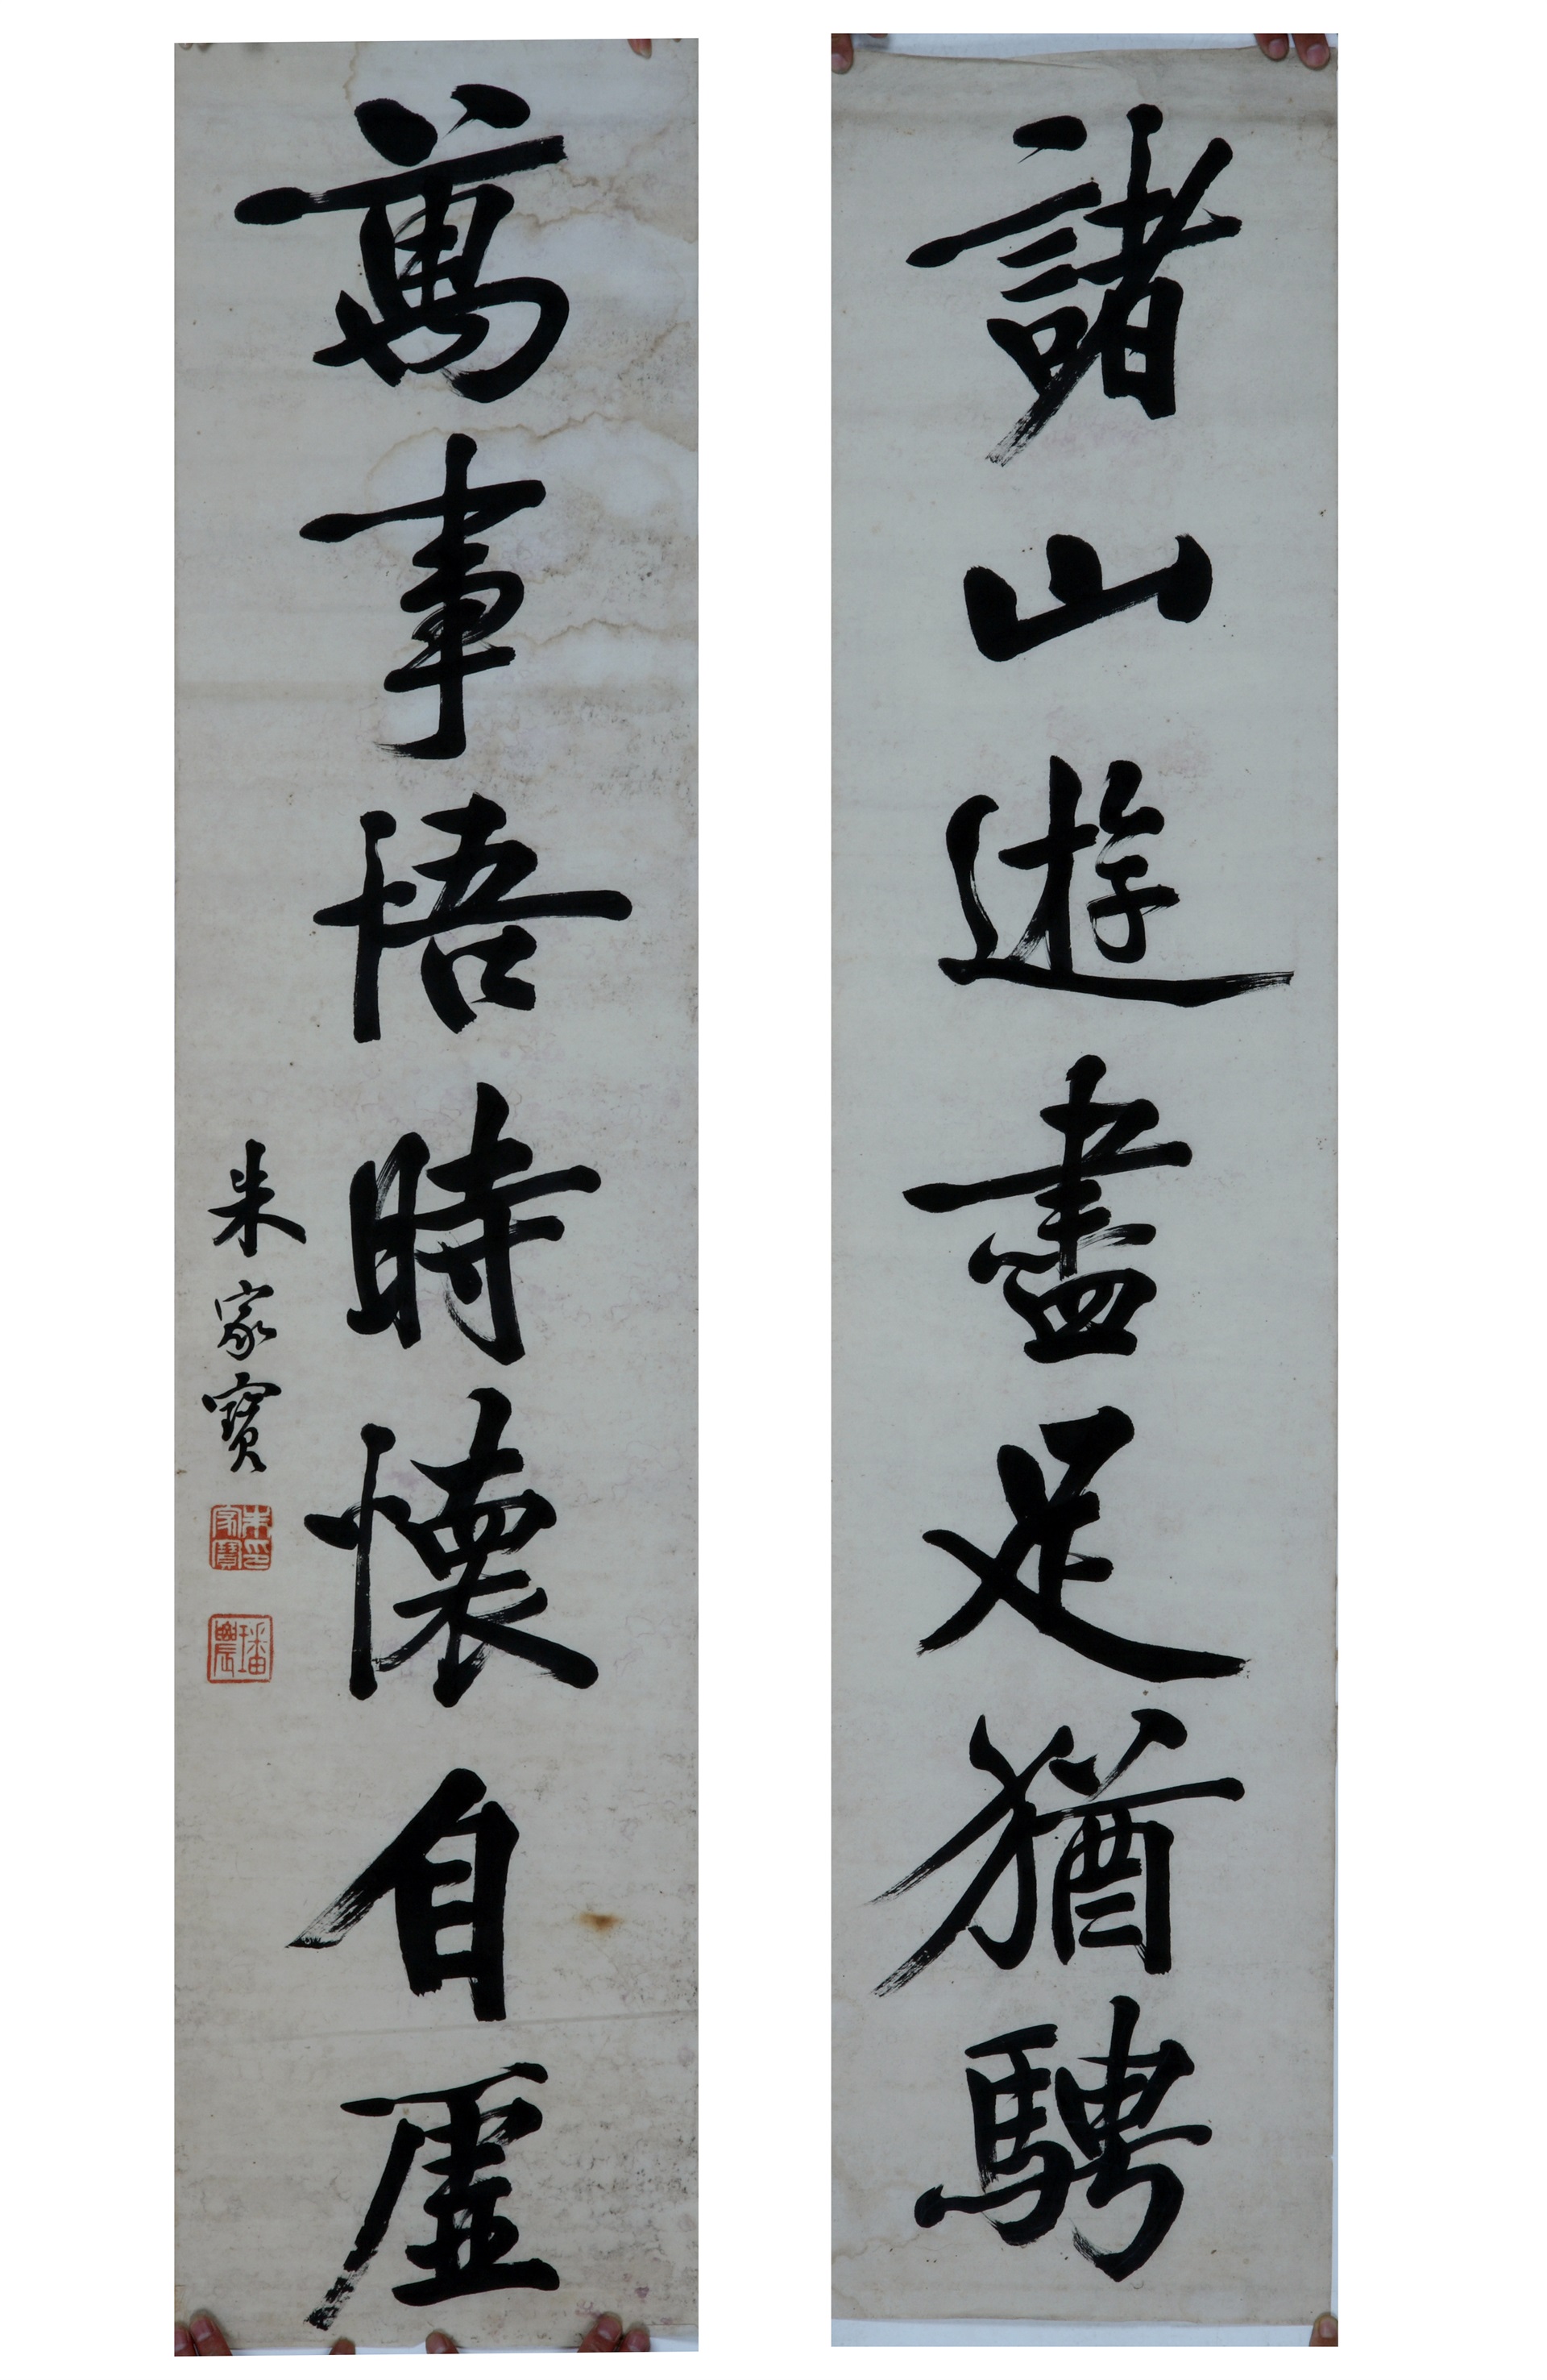 諸山遊盡足猶騁
萬事悟時懷自虛
朱家寶
朱家寶印